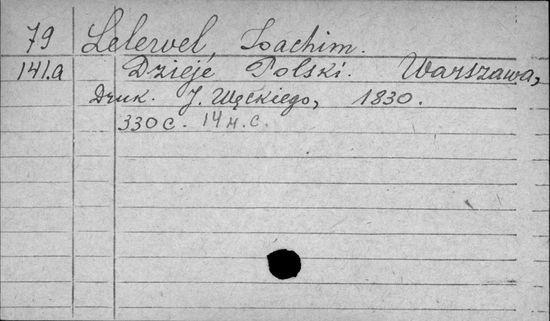 79 Lelewel, Ioachim.
141.a Dzieje Polski. Warszawa,
Druk. J. Węckiego, 1830.
330 c. 14 н. c.